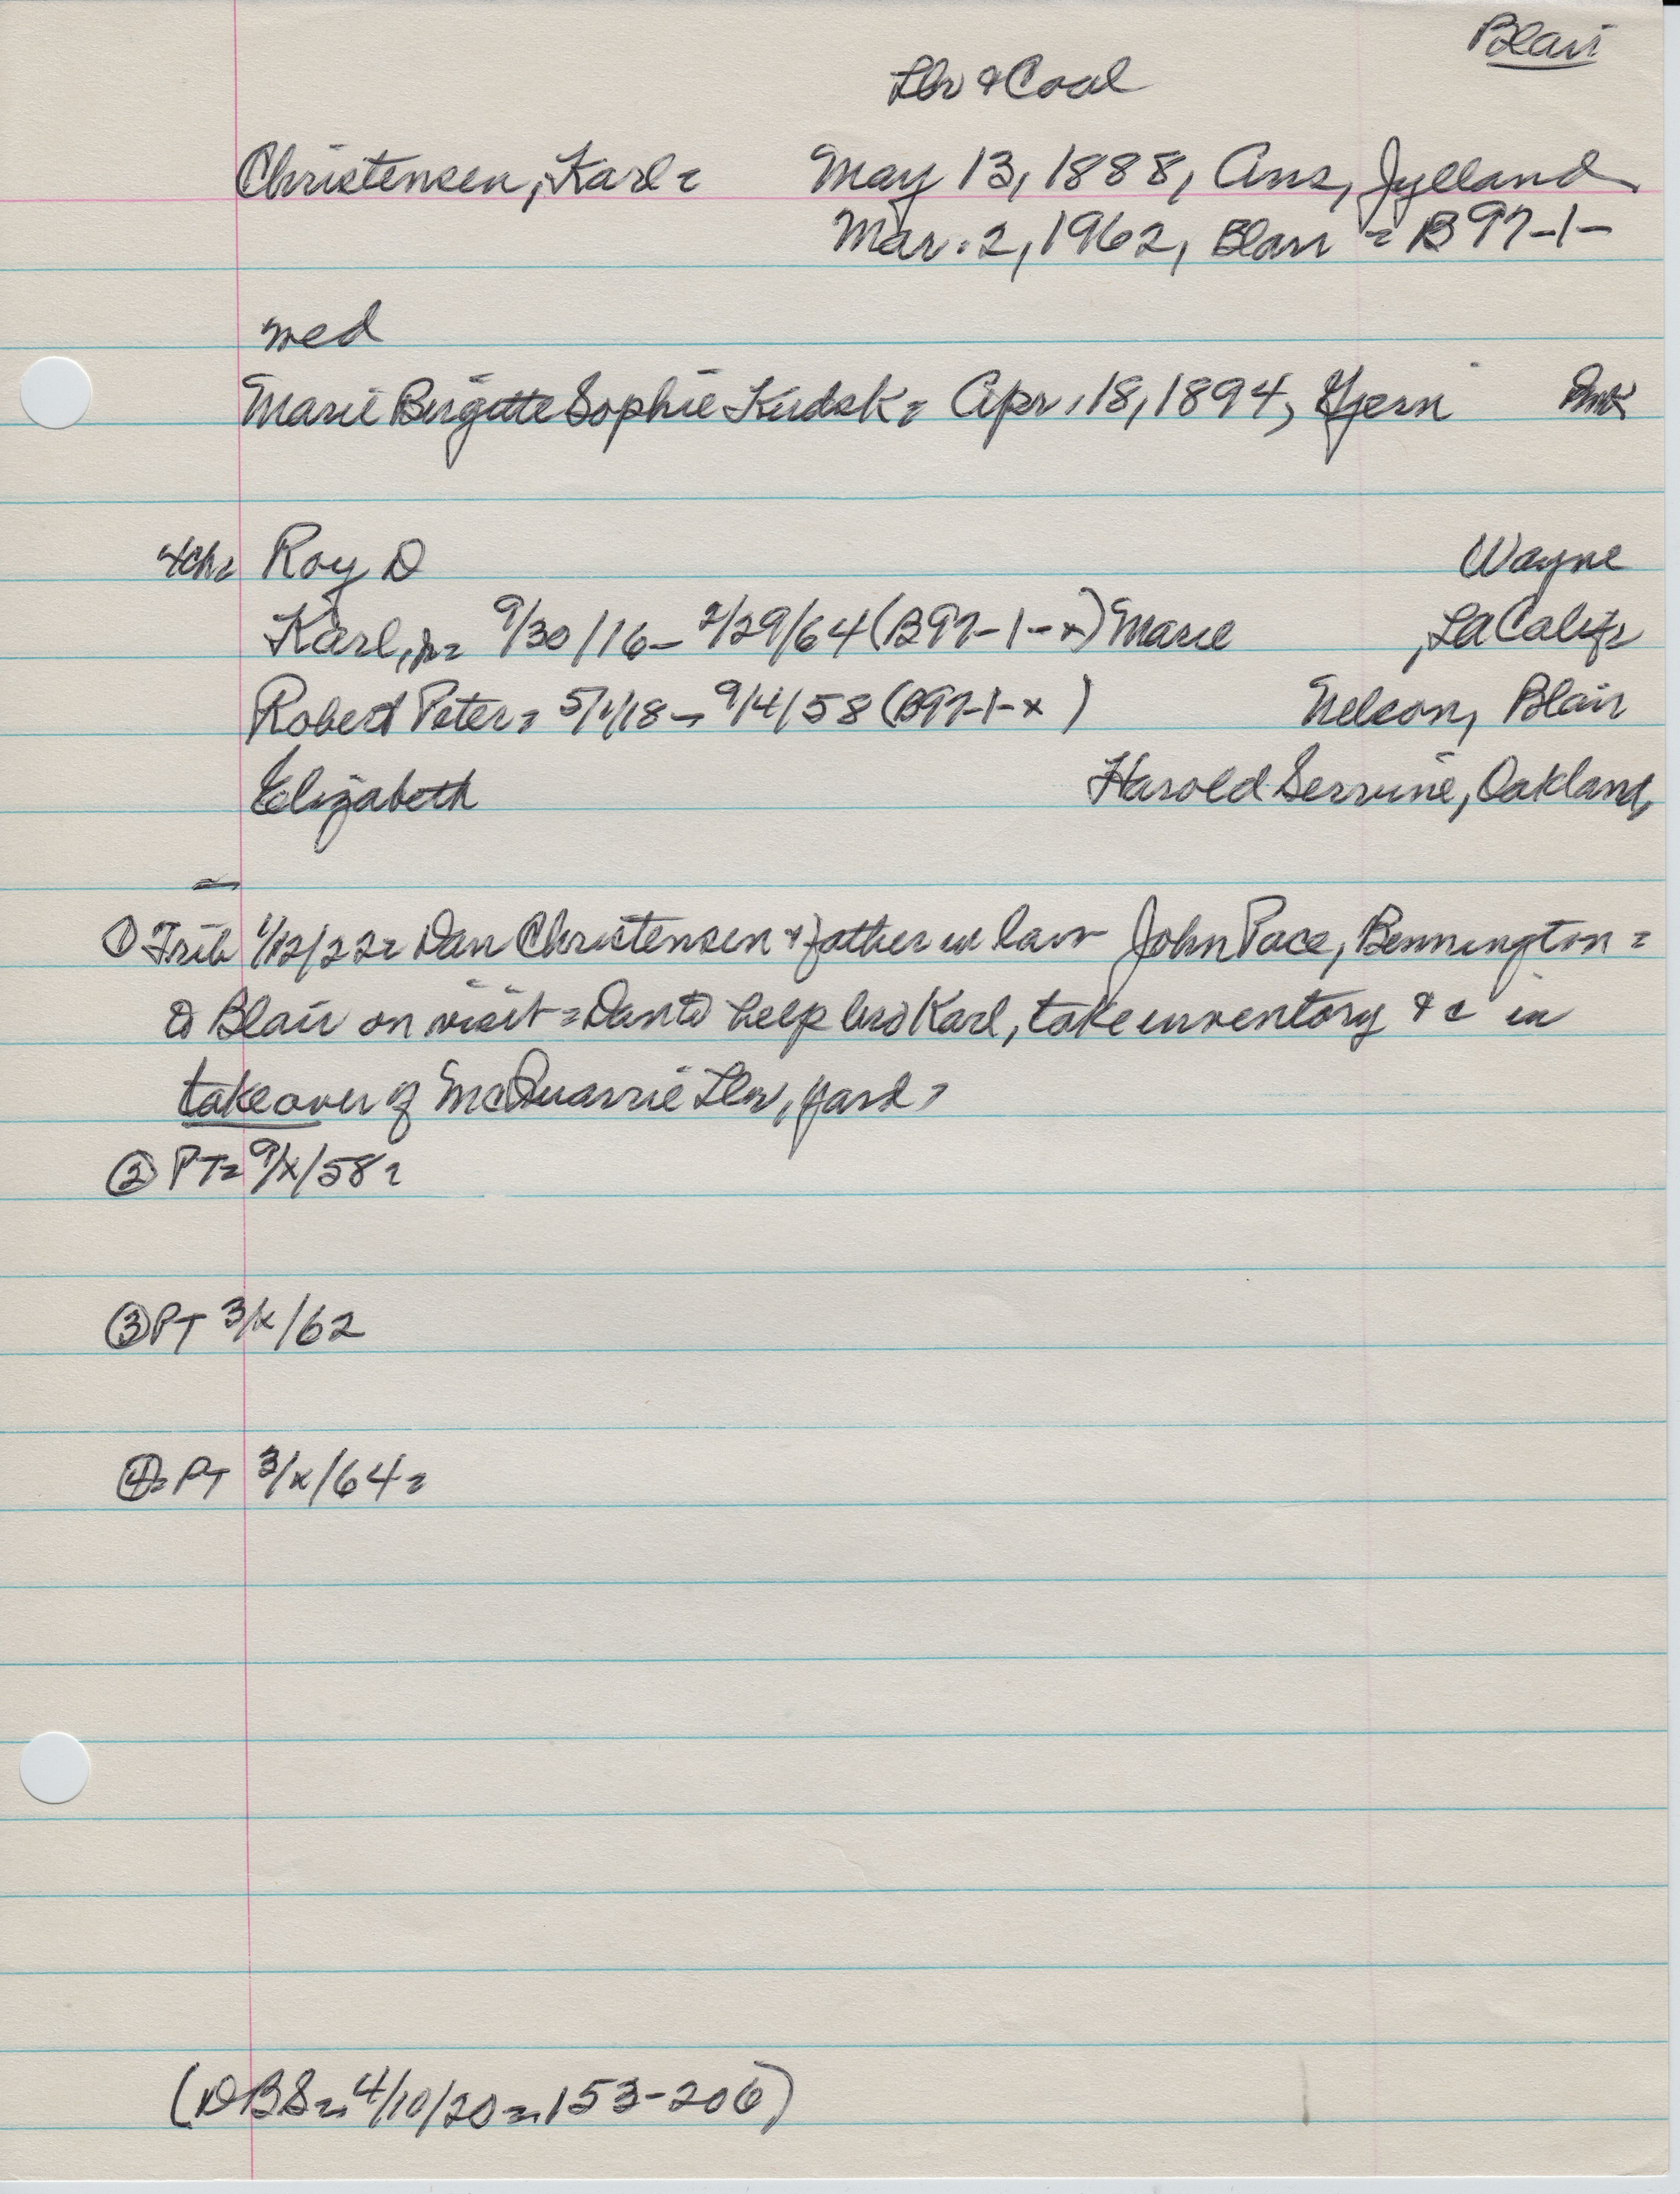 Blair
Lbr & Coal
Christensen, Karl = May 13, 1888, Ans, Jylland
Mar. 2, 1962, Blair = B97-1-
med
Marie Birgitte Sophie Kudsk = Apr. 18, 1894, Gjern Dmk
4ch= Roy D Wayne
Karl, Jr= 9/30/16- 2/29/64 (B97-1-x) Marie , La Calif
Robert Peter= 5/1/18- 9/4/58 (B97-1-x ) Nelson, Blair
Elizabeth Harold Servine, Oakland,
① Trib 1/12/22= Dan Christensen & father in law John Pace, Bennington =
to Blair on visit = Dan to help bro Karl, take inventory &c in
takeover of McQuarrie Lbr, yard =
② PT= 9/x/58 =
③ PT 3/x/62
④= PT 3/x/64 =
(DBS= 4/10/20=, 153-206)